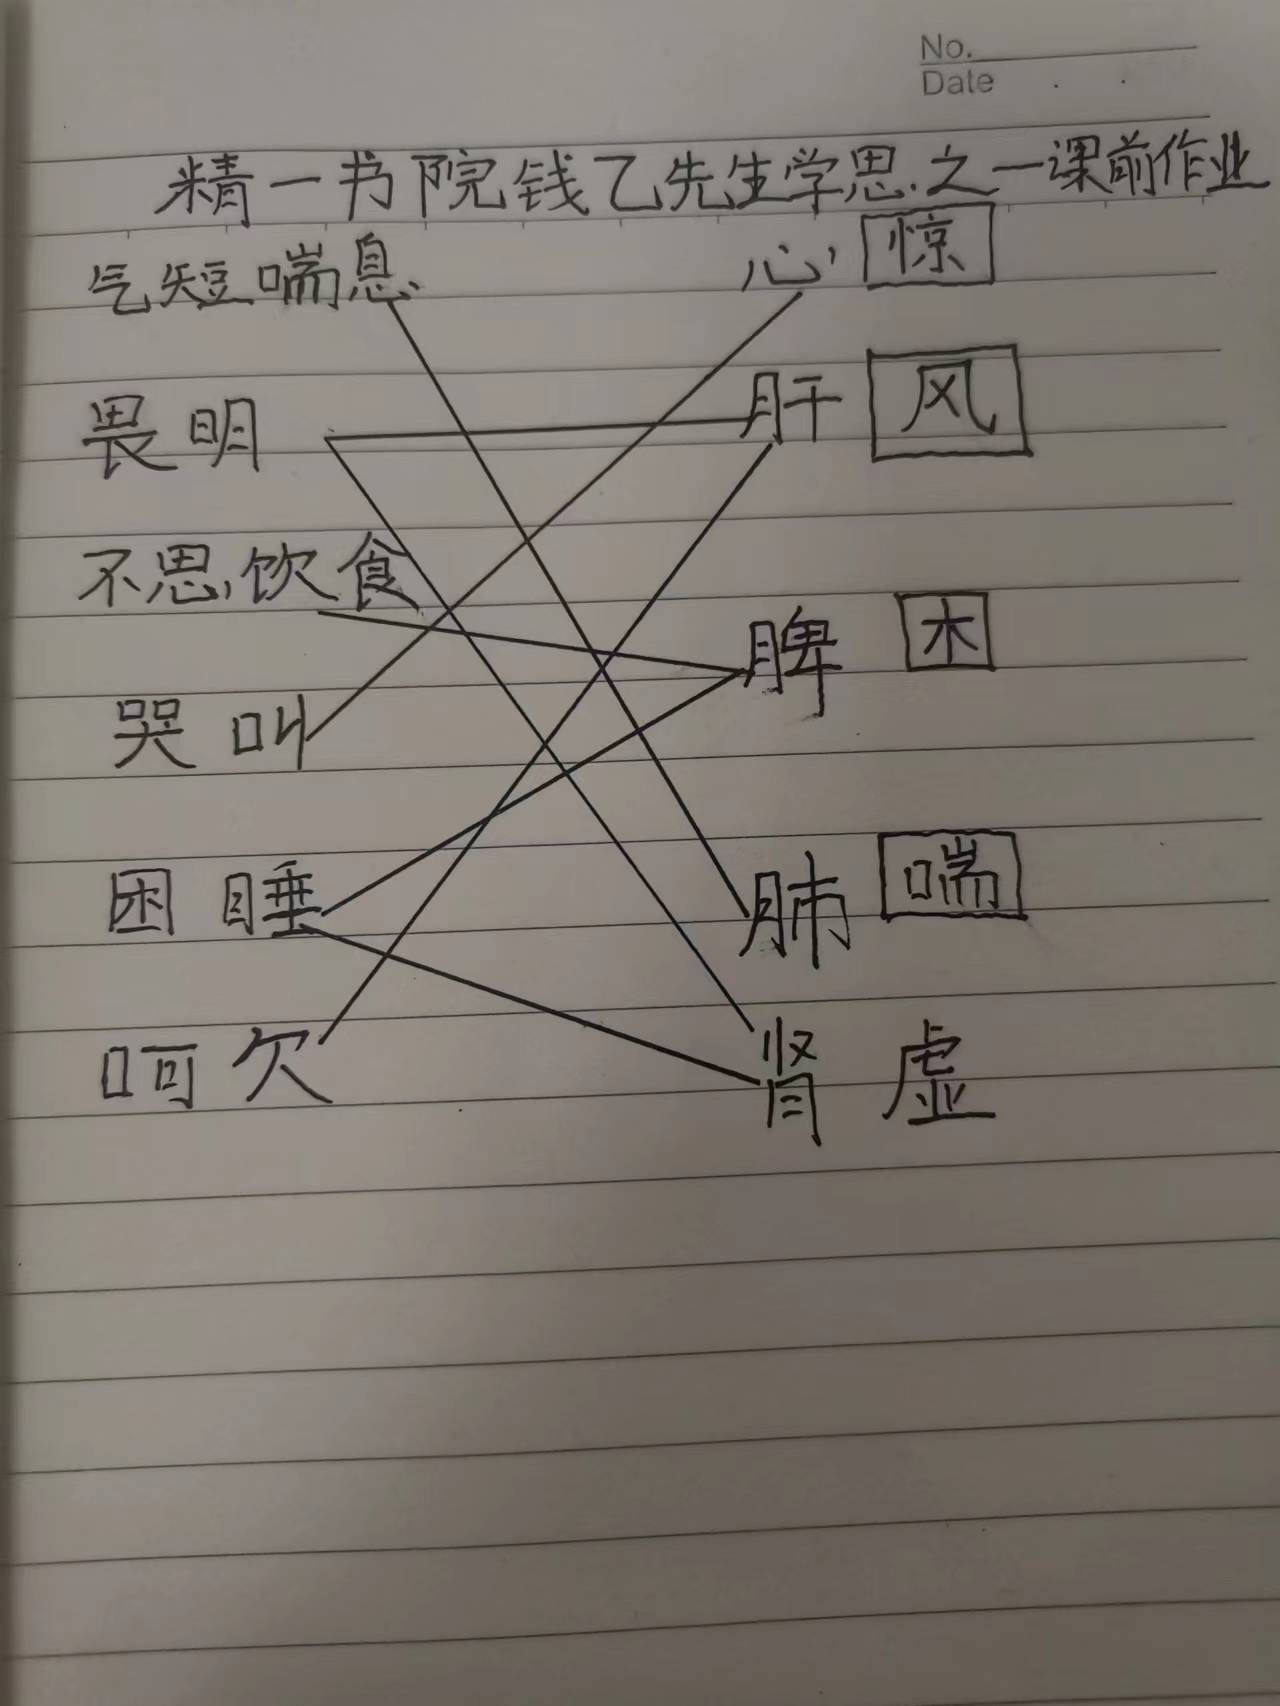 No.
Date
精一书院钱乙先生学思之一课前作业
气短喘息 心 惊
畏明 肝 风
不思饮食 脾 困
哭叫
困睡 肺 喘
呵欠 肾 虚